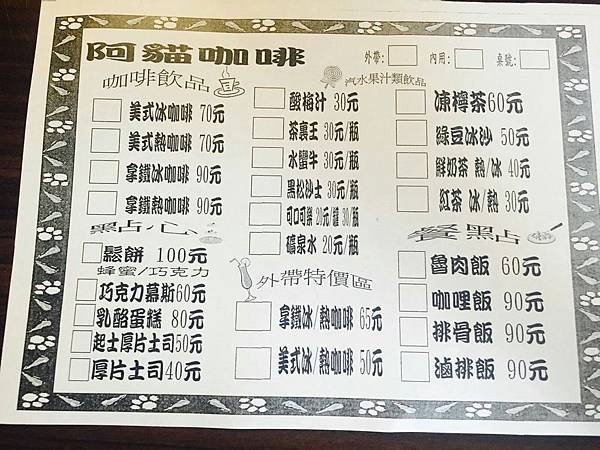 阿貓咖啡
外帶: 內用: 桌號:
咖啡飲品
美式冰咖啡 70元
美式熱咖啡 70元
拿鐵冰咖啡 90元
拿鐵熱咖啡 90元
點心
鬆餅 100元
蜂蜜/巧克力
巧克力慕斯60元
乳酪蛋糕 80元
起士厚片土司50元
厚片土司40元
汽水果汁類飲品
酸梅汁 30元
茶裏王 30元/瓶
水蠻牛 30元/瓶
黑松沙士 30元/瓶
可口可樂 20元/罐 30/瓶
礦泉水 20元/瓶
外帶特價區
拿鐵冰/熱咖啡 65元
美式冰/熱咖啡 50元
凍檸茶60元
綠豆冰沙 50元
鮮奶茶 熱/冰 40元
紅茶 冰/熱 30元
餐點
魯肉飯 60元
咖哩飯 90元
排骨飯 90元
滷排飯 90元